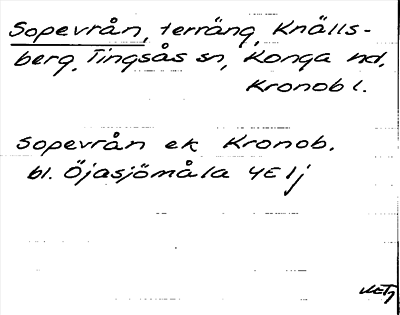 Sopevrån, terräng, Knälls-
berg, Tingsås sn, Konga hd,
Kronob l.
Sopevrån ek Kronob.
bl. Öjasjömåla 4E 1j